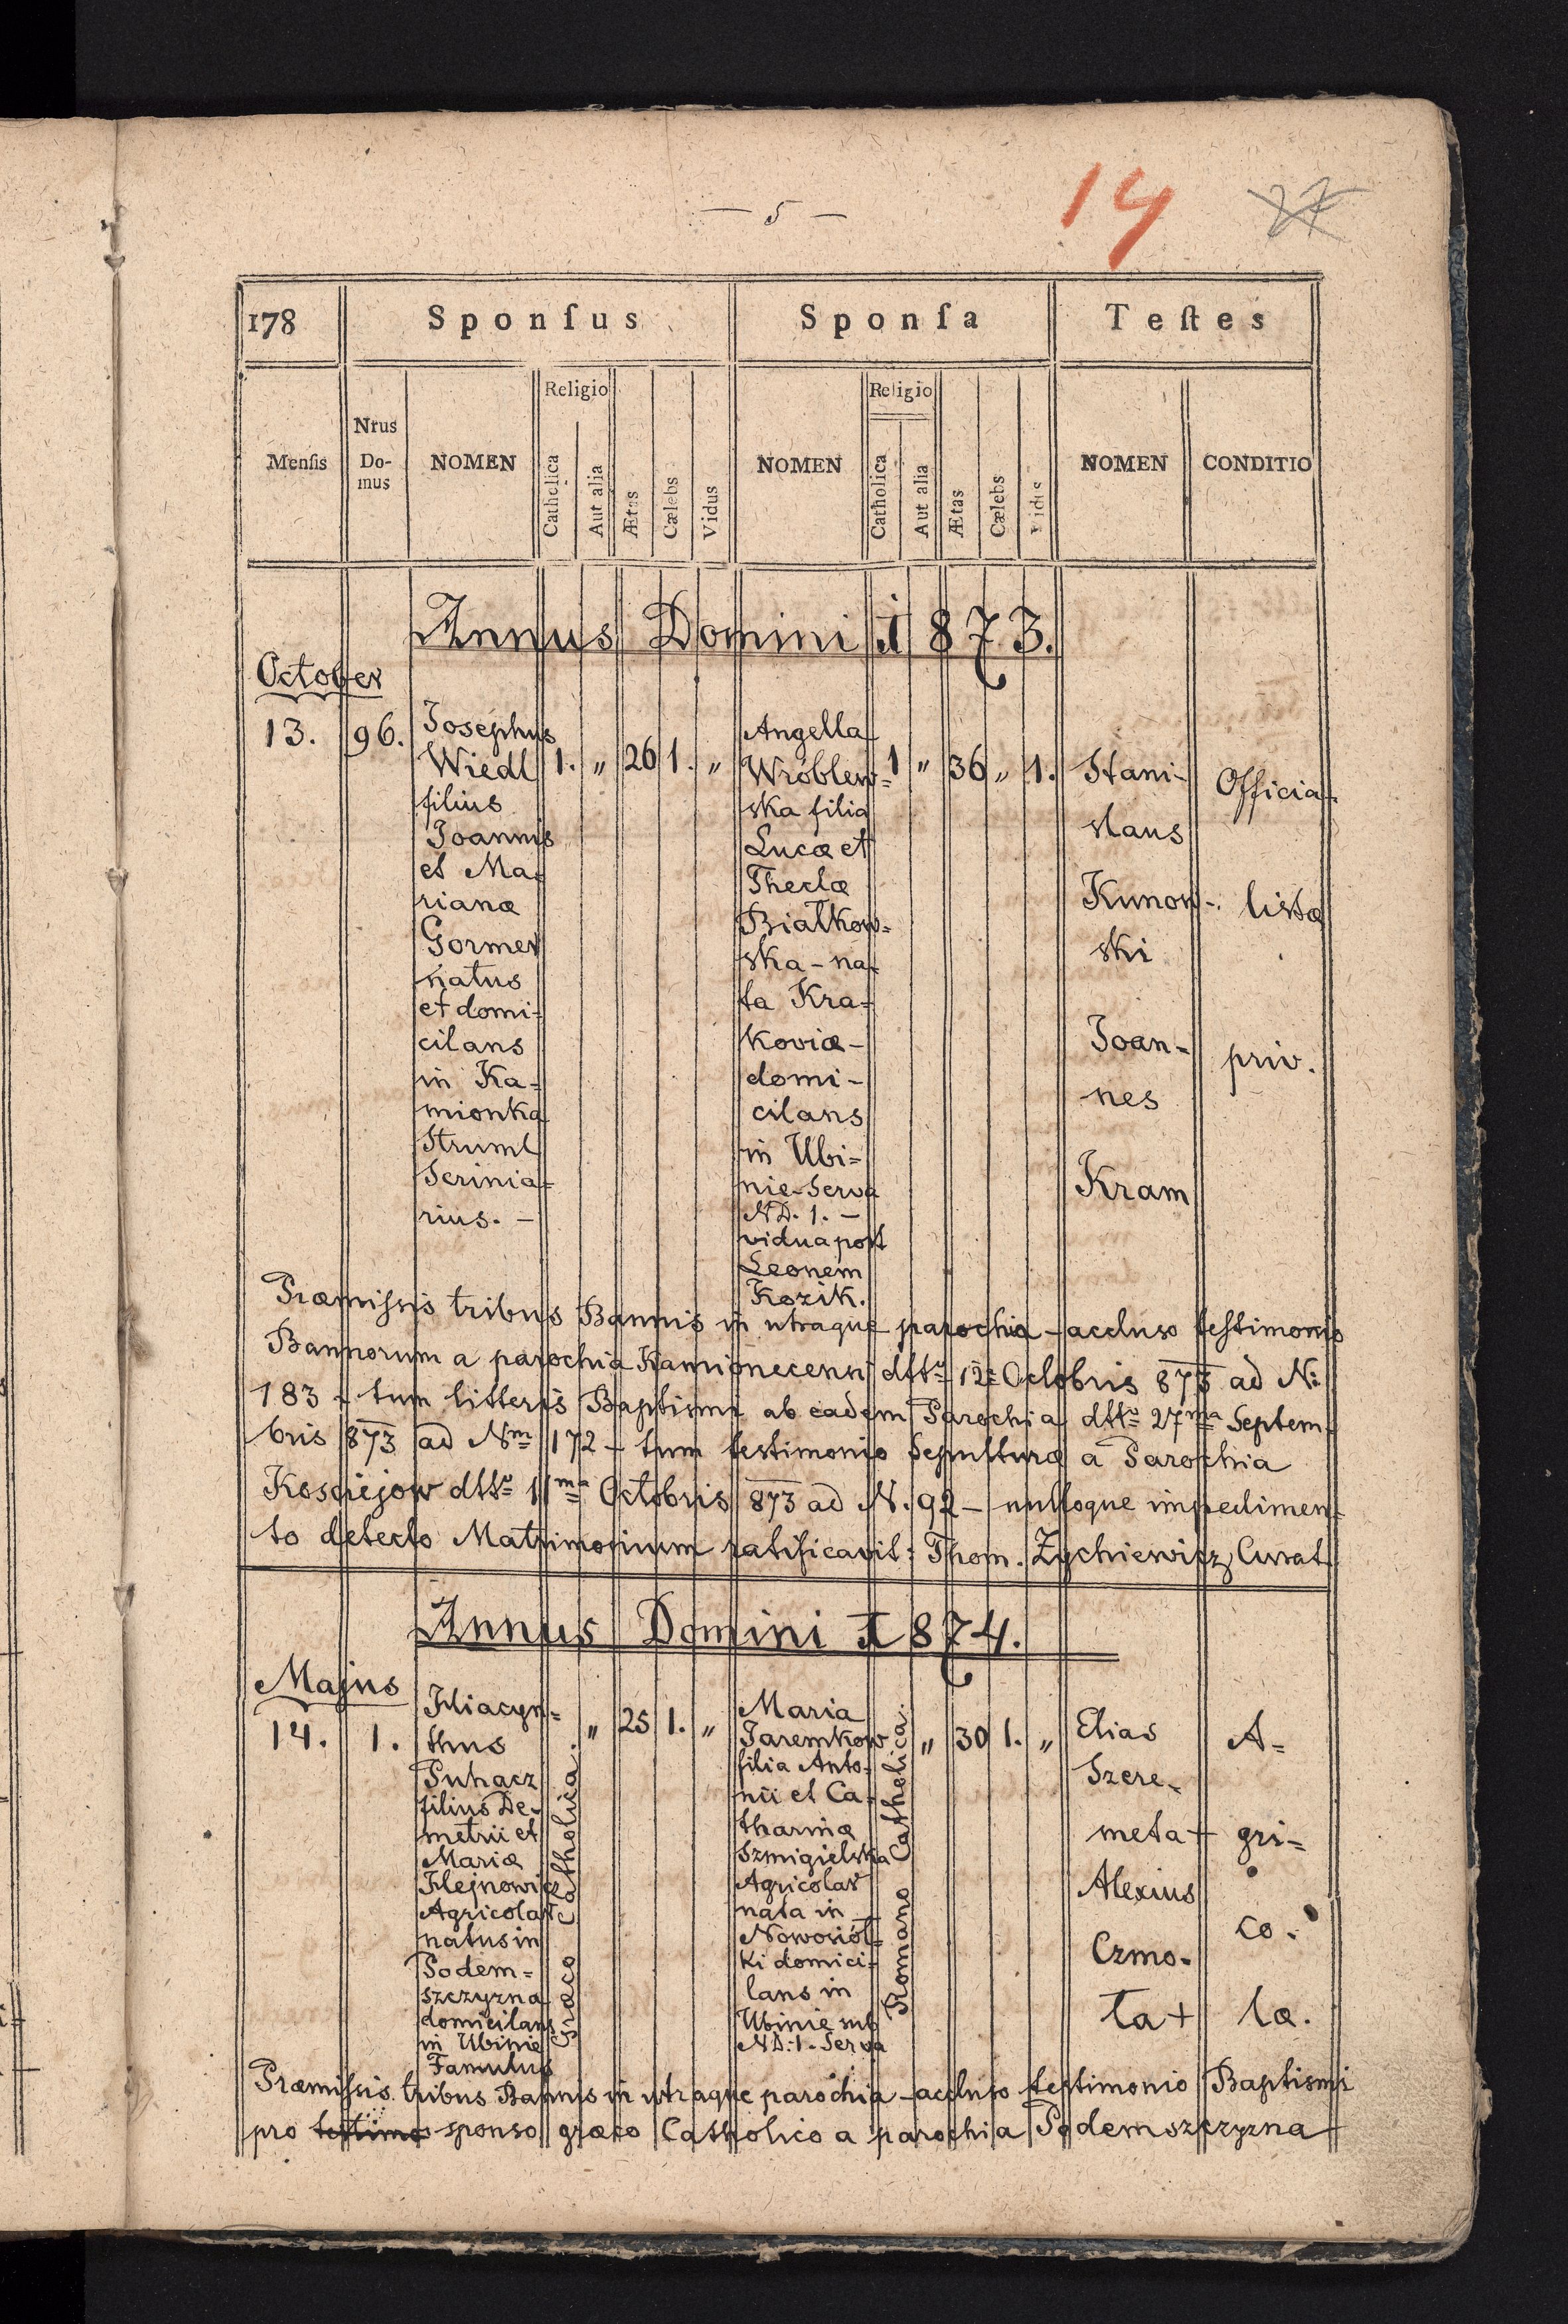 — 5 —
14
27
178
Sponſus
Sponſa
Teſtes
Menſis
Nrus
Do-
mus
NOMEN
Religio
Catholica
Aut alia
Ætas
Cælebs
Vidus
NOMEN
Religio
Catholica
Aut alia
Ætas
Cælebs
Vidus
NOMEN
CONDITIO
Annus Domini 1873.
October
13.
96.
Josephus
Wiedl
filius
Joannis
et Ma-
rianæ
Gormer
natus
et domi-
cilans
in Ka-
mionka
Struml
Scrinia=
rius. –
1.
"
26
1.
"
Angella
Wróblew=
ska filia
Lucæ et
Theclæ
Białkow=
ska – na-
ta Kra-
koviæ –
domi-
cilans
in Ubi=
nie – Serva
ND. 1. –
vidua post
Leonem
Kozik.
1
"
36
"
1.
Stani-
slaus
Kunow-
ski
Joan-
nes
Kram
Officia-
listæ
priv.
Præmissis tribus Bannis in utraque parochia – accluso testimonio
Bannorum a parochia Kamionecensi dtto 12 Octobris 873 ad N:
183 – tum litteris Baptismi ab eadem Parochia dtto 27ma Septem-
bris 873 ad Nm 172 – tum testimonio Sepulturæ a Parochia
Kosciejow dtto 11ma Octobris 873 ad N. 92 – nulloque impedimen-
to detecto Matrimonium ratificavit: Thom. Zychiewicz, Curat.
Annus Domini 1874.
Majus
14.
1.
Hiacyn=
thus
Puhacz
filius De-
metrii et
Mariæ
Hlejnowicz
Agricolar
natus in
Podem=
szczyzna
domicilans
in Ubinie
Famulus
Græco Catholica.
"
25
1.
"
Maria
Jaremkow
filia Anto-
nii et Ca-
tharinæ
Szmigielska
Agricolar
nata in
Nowosiół-
ki domici-
lans in
Ubinie sub
ND: 1. Serva
Romano Catholica.
"
30
1.
"
Elias
Szere-
meta +
Alexius
Czmo-
ła +
A=
gri=
co-
læ.
Præmissis tribus Bannis in utraque parochia – accluso testimonio Baptismi
pro testimo sponso græco Catholico a parochia Podemszczyzna